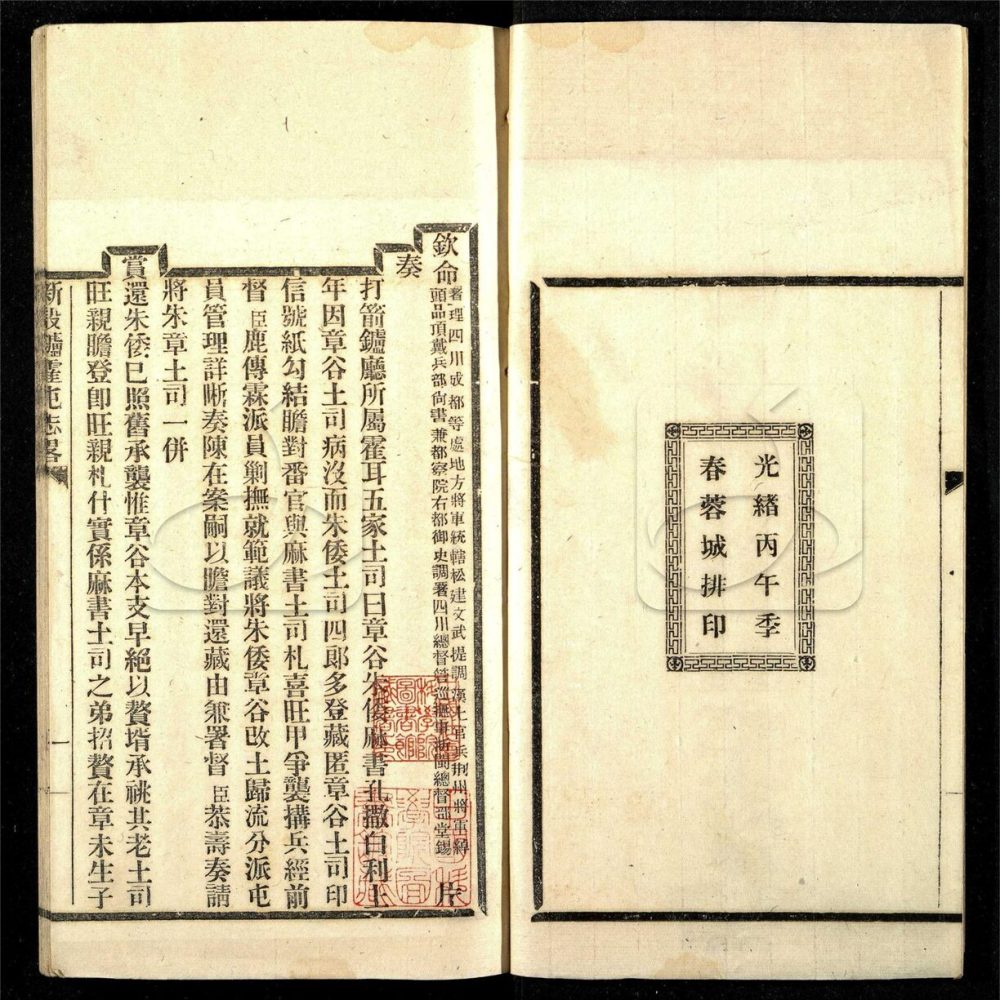 光緒丙午季
春蓉城排印
欽命
署理四川成都等處地方將軍統轄松建文武提調漢土官兵荆州將軍
頭品頂戴兵部尚書兼都察院右都御史調署四川總督管巡撫事閩總督部堂錫
片
奏
打箭鑪廳所屬霍耳五家土司曰章谷朱倭麻書孔撒白利上
年因章谷土司病沒而朱倭土司四郞多登藏匿章谷土司印
信號紙勾結瞻對番官與麻書土司札喜旺甲爭襲搆兵經前
督臣鹿傳霖派員剿撫就範議將朱倭章谷改土歸流分派屯
員管理詳晰奏陳在案嗣以瞻對還藏由兼署督臣恭壽奏請
將朱章土司一併
賞還朱倭已照舊承襲惟章谷本支早絕以贅壻承祧其老土司
旺親瞻登卽旺親札什實係麻書土司之弟招贅在章未生子
新設鑪霍屯志畧
一